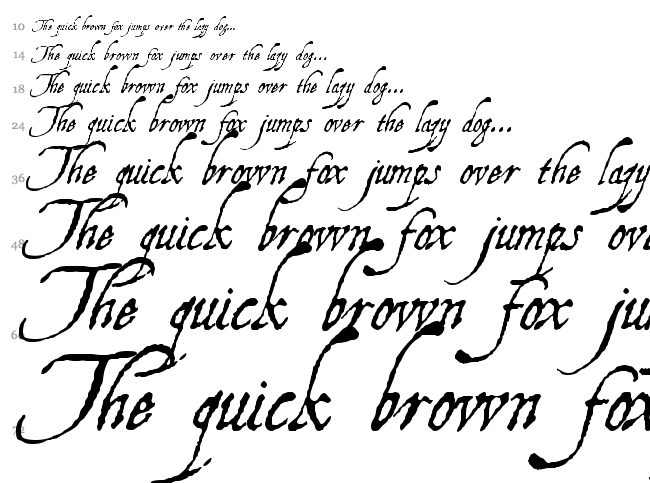 10 The quick brown fox jumps over the lazy dog...
14 The quick brown fox jumps over the lazy dog...
18 The quick brown fox jumps over the lazy dog...
24 The quick brown fox jumps over the lazy dog...
36 The quick brown fox jumps over the lazy
48 The quick brown fox jumps ov
The quick brown fox ju
72 The quick brown fox